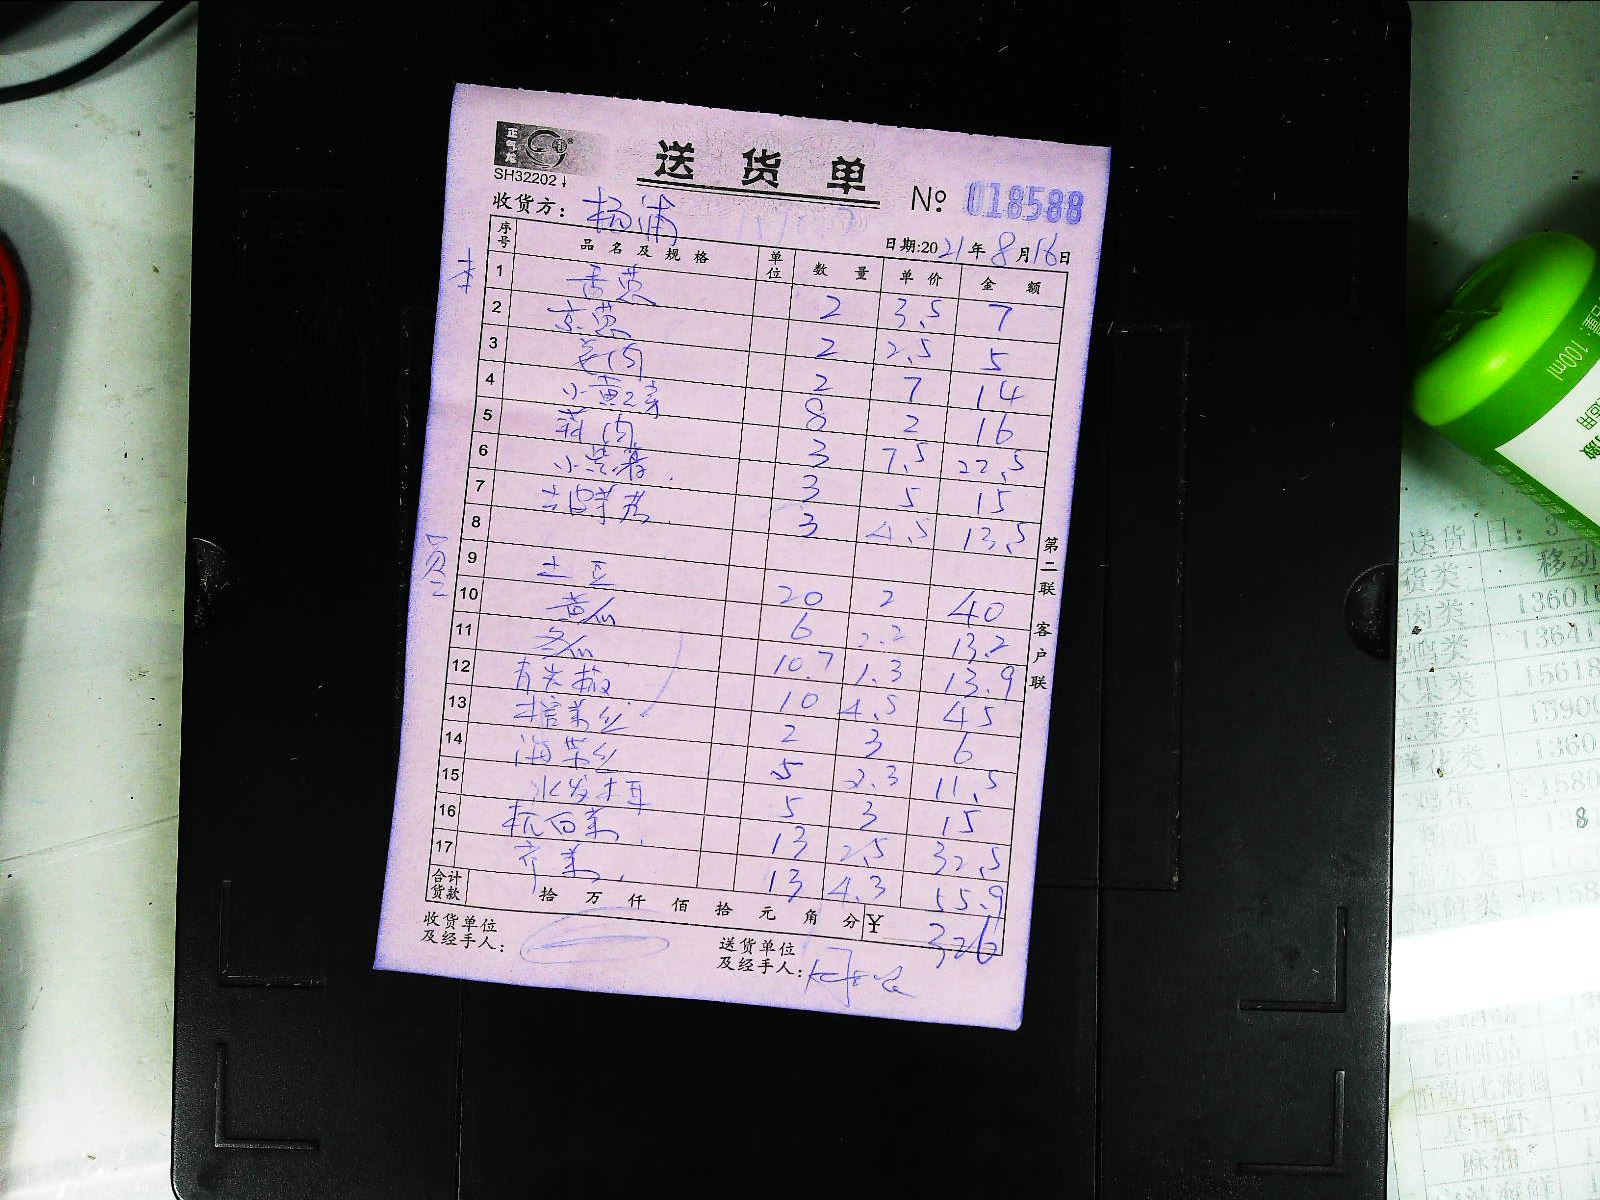 正气龙
SH32202
送货单
№ 018588
收货方: 杨浦
日期:2021年8月16日
序号 品名及规格 单位 数量 单价 金额
1 2 3.5 7
2 京葱 2 2.5 5
3 姜肉 2 7 14
4 8 2 16
5 蒜肉 3 7.5 22.5
6 3 5 15
7 3 4.5 13.5
8
9 土豆 20 2 40
10 黄瓜 6 2.2 13.2
11 冬瓜 10.7 1.3 13.9
12 青尖椒 10 4.5 45
13 榨菜丝 2 3 6
14 海带丝 5 2.3 11.5
15 水发木耳 5 3 15
16 杭白菜 13 2.5 32.5
17 芹菜 13 4.3 55.9
合计货款 拾 万 仟 佰 拾 元 角 分 ¥ 326
收货单位及经手人:
送货单位及经手人:
第二联 客户联
100ml
送货日: 3
货类 移动
肉类 13601
鸭类 13641
水果类 15618
蔬菜类 15900
1360
鸡蛋 1580
粮油 138
158
印制品 18
基围虾
麻油